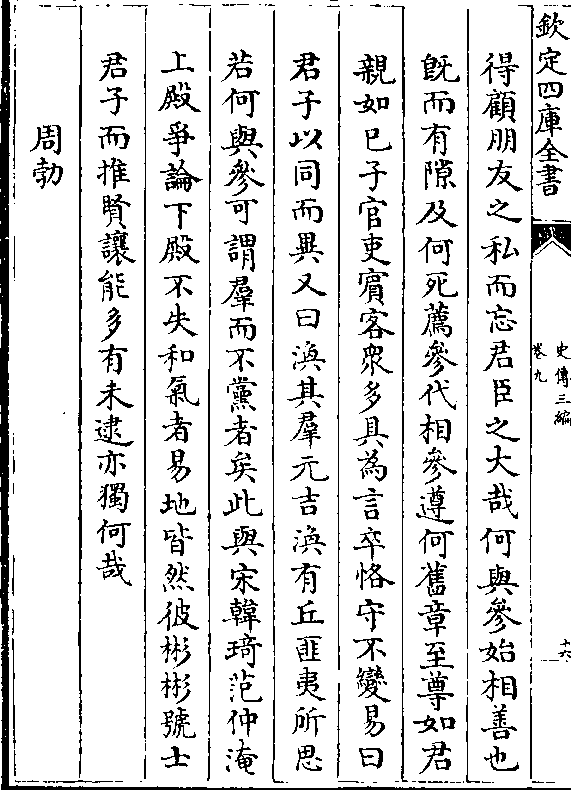 欽定四庫全書
史傳三編
卷九
十六
得顧朋友之私而忘君臣之大哉何與參始相善也
既而有隙及何死薦參代相參遵何舊章至尊如君
親如已子官吏賓客衆多具為言卒恪守不變易曰
君子以同而異又曰渙其羣元吉渙有丘匪夷所思
若何與參可謂羣而不黨者矣此與宋韓琦范仲淹
上殿爭論下殿不失和氣者易地皆然彼彬彬號士
君子而推賢讓能多有未逮亦獨何哉
周勃